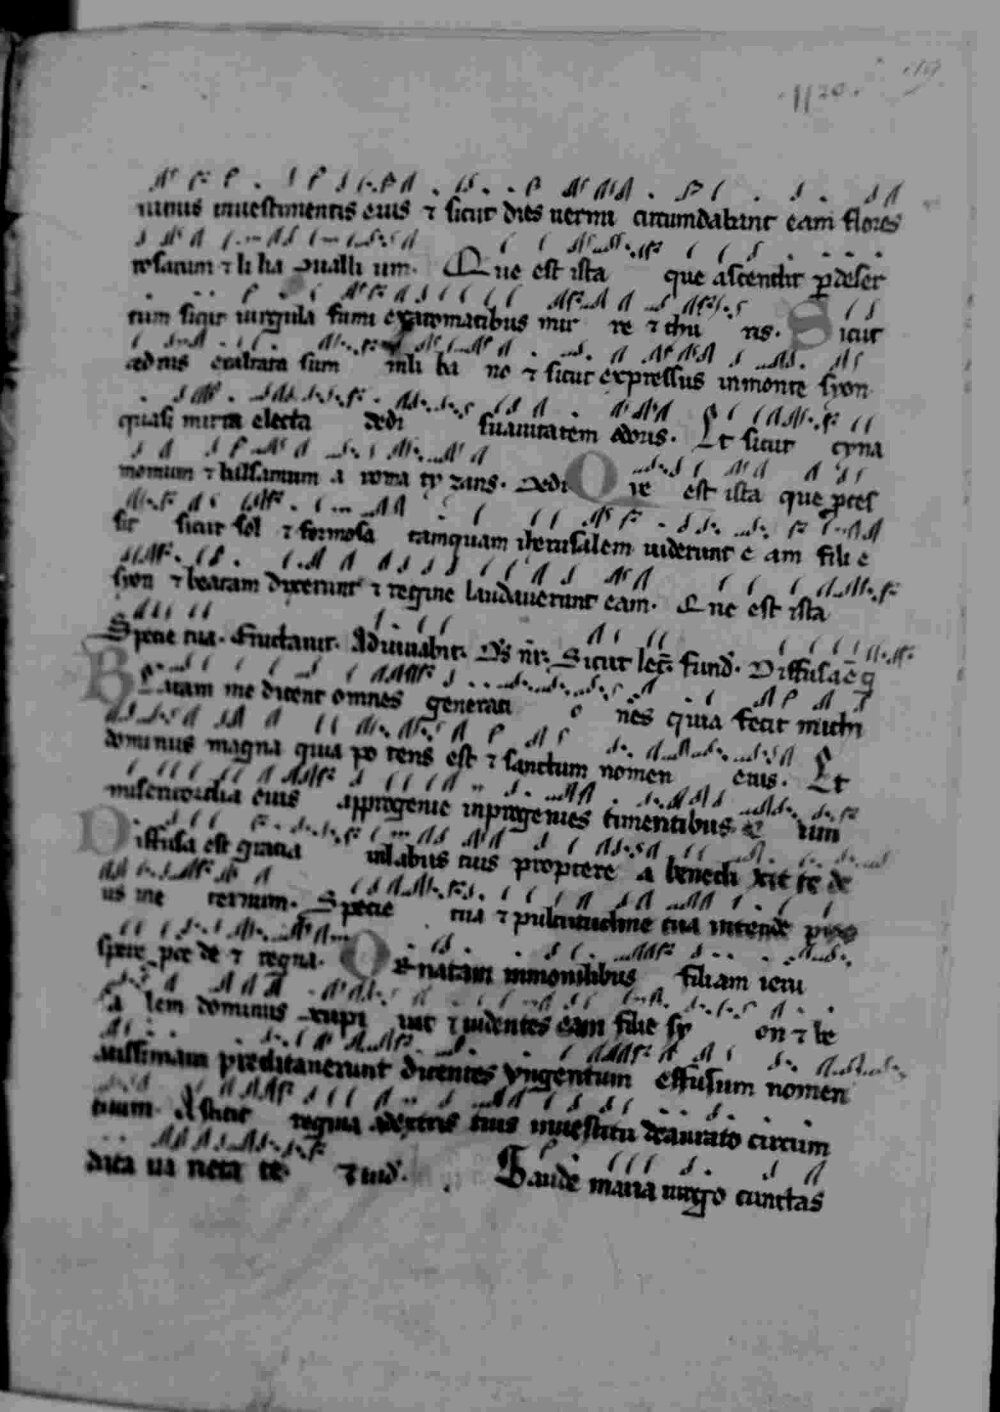 1120. 119
nimis inuestimentis eius ⁊ sicut dies uerni circumdabant eam flores
rosarum ⁊ li lia conualli um. Que est ista que ascendit p deser
tum sicut uirgula fumi exaromatibus mir re ⁊ thu ris. Sicut
cedrus exaltata sum inli ba no ⁊ sicut cypressus inmonte syon
quasi mirra electa dedi suauitatem odoris. Et sicut cyna
momum ⁊ balsamum a roma ty zans. Dedi Que est ista que pces
sit sicut sol ⁊ formosa tamquam iherusalem uiderunt e am filie
syon ⁊ beatam dixerunt ⁊ regine laudauerunt eam. Que est ista
Specie tua. Adiuuabit. Ds nr. Sicut let. fund. Diffusa e g
Beatam me dicent omnes generati o nes quia fecit michi
dominus magna quia po tens est ⁊ sanctum nomen eius. Et
misericordia eius approgenie inprogenies timentibus e um
Diffusa est gracia inlabiis tuis proptere a benedi xit te de
us ine ternum. Specie tua ⁊ pulcritudine tua intende pros
pere pce de ⁊ regna. Ornatam inmonilibus filiam ieru
sa lem dominus cupi uit ⁊ uidentes eam filie sy on ⁊ be
atissimam predicauerunt dicentes ungentum effusum nomen
tuum. Astitit regina adextris tuis inuestitu deaurato circum
data ua rieta te. ⁊ uid. Gaude maria uirgo cunctas